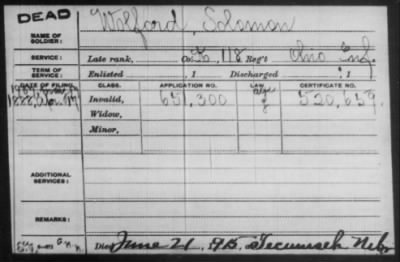 DEAD
NAME OF SOLDIER: Wolford, Solomon
SERVICE: Late rank, Co. K, 118 Reg't Ohio Inf.
TERM OF SERVICE: Enlisted , 1 Discharged , 1
DATE OF FILING. CLASS. APPLICATION NO. LAW. CERTIFICATE NO.
1888, Invalid, 651,300 520,659
Widow,
Minor,
ADDITIONAL SERVICES:
REMARKS:
Died June 21, 1915, Tecumseh Neb